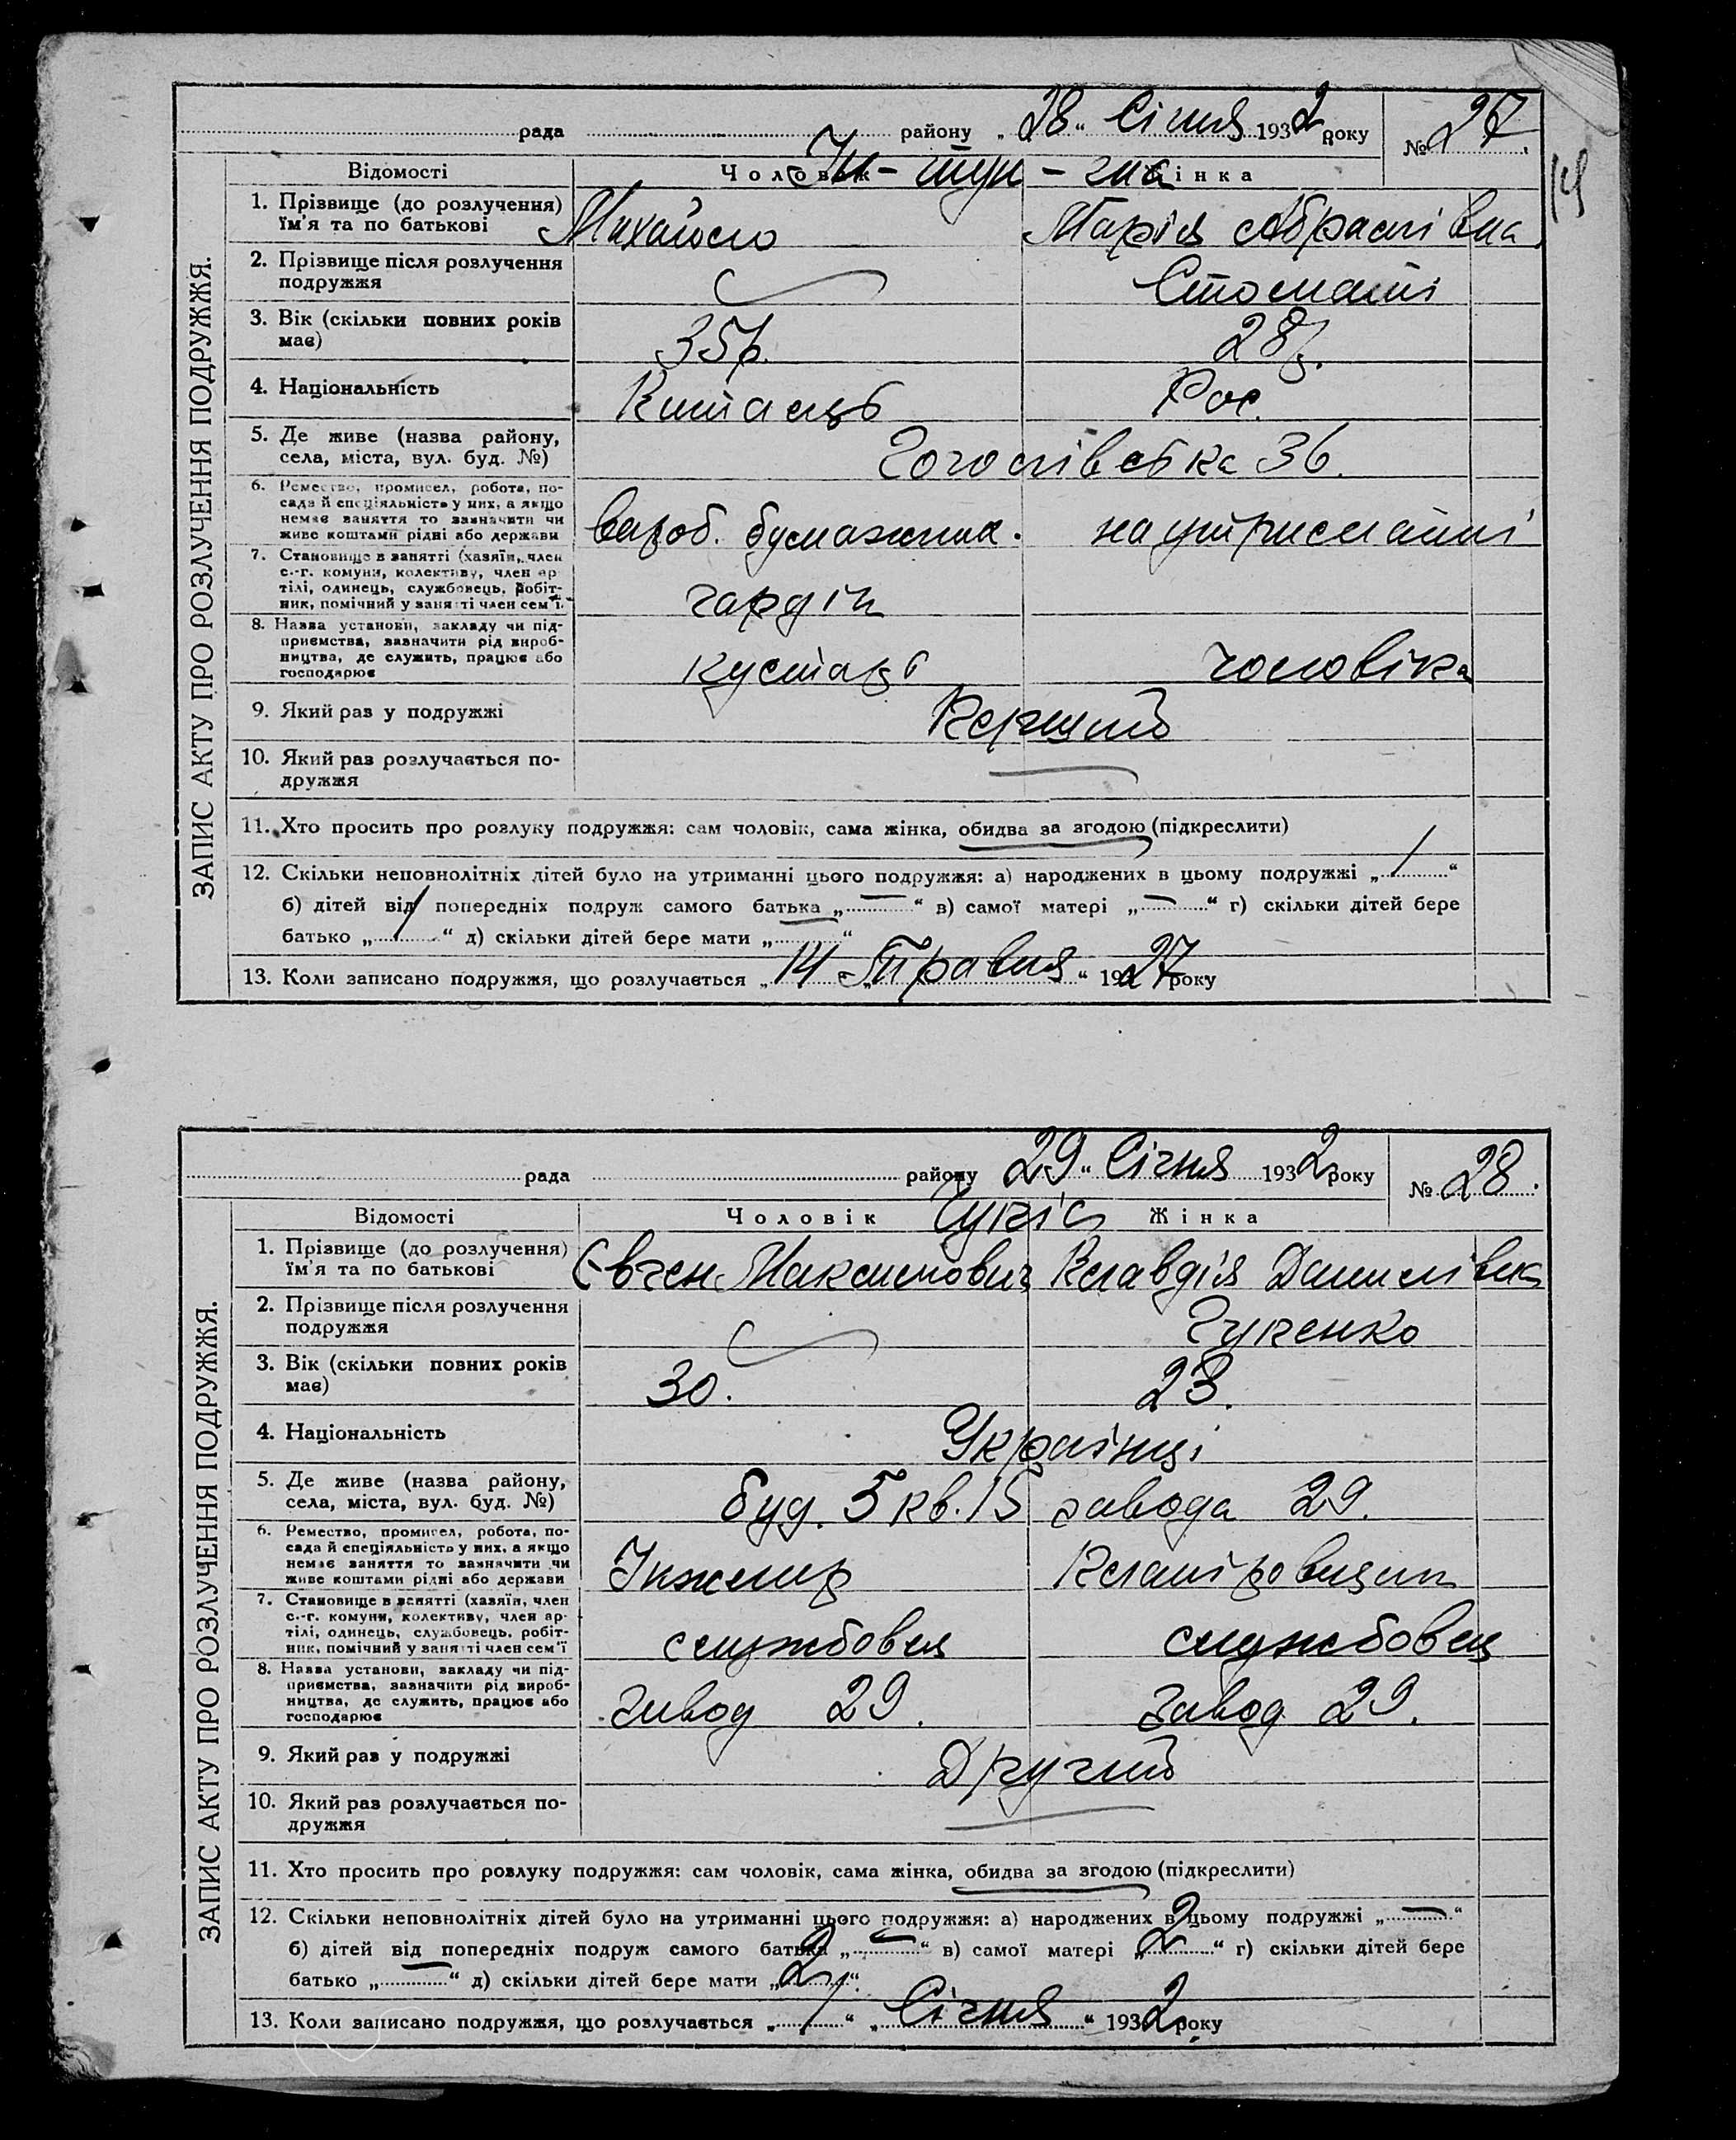 рада района „28“ Січня 1932 року № 27
19
Відомості Чоловік Жінка
Ін-тун-
1. Прізвище (до розлучення) Михайло Марія Абрамівна
ім'я та по батькові
2. Прізвище після розлучення Стоматі
подружжя
3. Вік (скільки повних років 35р. 28р.
має)
4. Національність Китаєць Рос.
5. Де живе (назва району, 36.
села, міста, вул. буд. №)
6. Ремество, промисел, робота, по-
сада й спеціяльність у них, а якщо
немає заняття то зазначити чи вироб. бумажних на утриманні
живе коштами рідні або держави
7. Становище в занятті (хазяїн, член
с.-г. комуни, колективу, член ар-
тілі, одинець, службовець, робіт-
ник, помічний у занятті член сем'ї
8. Назва установи, закладу чи під-
приємства, зазначити рід вироб-
ництва, де служить, працює або кустарь чоловіка
господарює
9. Який раз у подружжі Перший
10. Який раз розлучається по-
дружжя
11. Хто просить про розлуку подружжя: сам чоловік, сама жінка, обидва за згодою (підкреслити)
12. Скільки неповнолітніх дітей було на утриманні цього подружжя: а) народжених в цьому подружжі „1“
б) дітей від попередніх подруж самого батька „—“ в) самої матері „—“ г) скільки дітей бере
батько „1“ д) скільки дітей бере мати „—“
13. Коли записано подружжя, що розлучається „14“ „Травня“ 1927 року
ЗАПИС АКТУ ПРО РОЗЛУЧЕННЯ ПОДРУЖЖЯ.
рада району 29“ Січня 1932 року № 28.
Відомості Чоловік Жінка
1. Прізвище (до розлучення) Євген Максимович Клавдія Данилівна
ім'я та по батькові
2. Прізвище після розлучення
подружжя
3. Вік (скільки повних років 30. 23.
має)
4. Національність Українці
5. Де живе (назва району, буд. 5 кв. 15 завода 29.
села, міста, вул. буд. №)
6. Ремество, промисел, робота, по-
сада й спеціяльність у них, а якщо
немає заняття то зазначити чи Інженер
живе коштами рідні або держави
7. Становище в занятті (хазяїн, член
с.-г. комуни, колективу, член ар-
тілі, одинець, службовець, робіт- службовец службовец
ник, помічний у занятті член сем'ї
8. Назва установи, закладу чи під-
приємства, зазначити рід вироб-
ництва, де служить, працює або завод 29. завод 29.
господарює
9. Який раз у подружжі Другий
10. Який раз розлучається по-
дружжя
11. Хто просить про розлуку подружжя: сам чоловік, сама жінка, обидва за згодою (підкреслити)
12. Скільки неповнолітніх дітей було на утриманні цього подружжя: а) народжених в цьому подружжі „—“
б) дітей від попередніх подруж самого батька „—“ в) самої матері „2“ г) скільки дітей бере
батько „—“ д) скільки дітей бере мати „2“.
13. Коли записано подружжя, що розлучається „1“ „Січня“ 1932 року
ЗАПИС АКТУ ПРО РОЗЛУЧЕННЯ ПОДРУЖЖЯ.